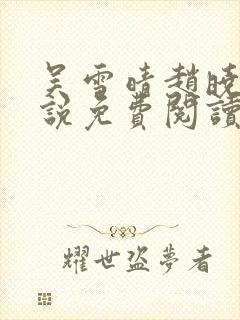 吴雪晴趙曉
說免費閱讀
耀世盜夢者